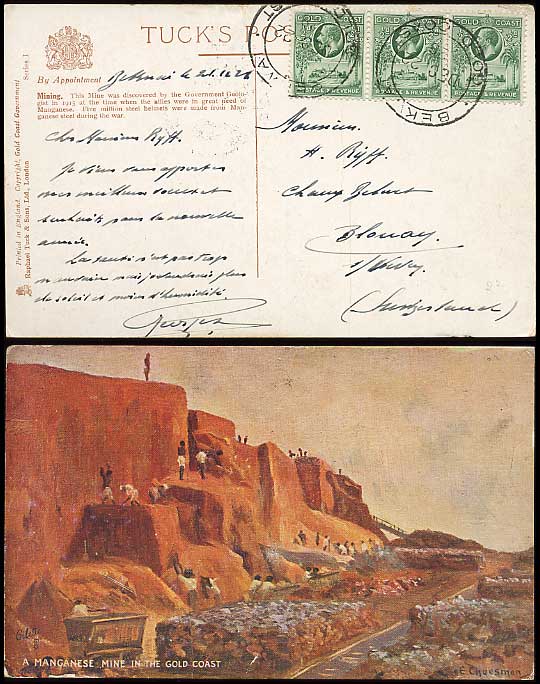 TUCK'S PO
By Appointment
Mining. This Mine was discovered by the Government Geolo-
gist in 1915 at the time when the allies were in great need of
Manganese. Five million steel helmets were made from Man-
ganese steel during the war.
Series I
Printed in England. Copyright, Gold Coast Government
Raphael Tuck & Sons, Ltd., London
GOLD COAST
POSTAGE & REVENUE
GOLD COAST
POSTAGE & REVENUE
GOLD COAST
POSTAGE & REVENUE
BEKW
Cher Monsieur Ryff.
Je viens vous apporter
mes meilleurs voeux et
souhaits pour la nouvelle
année.
La santé n'est pas trop
mauvaise mais j'attendrais plus
de soleil et moins d'humidité.
Monsieur
H. Ryff
Champ Belvert
Blonay
s/Vevey
(Switzerland)
A MANGANESE MINE IN THE GOLD COAST
E Cheesman